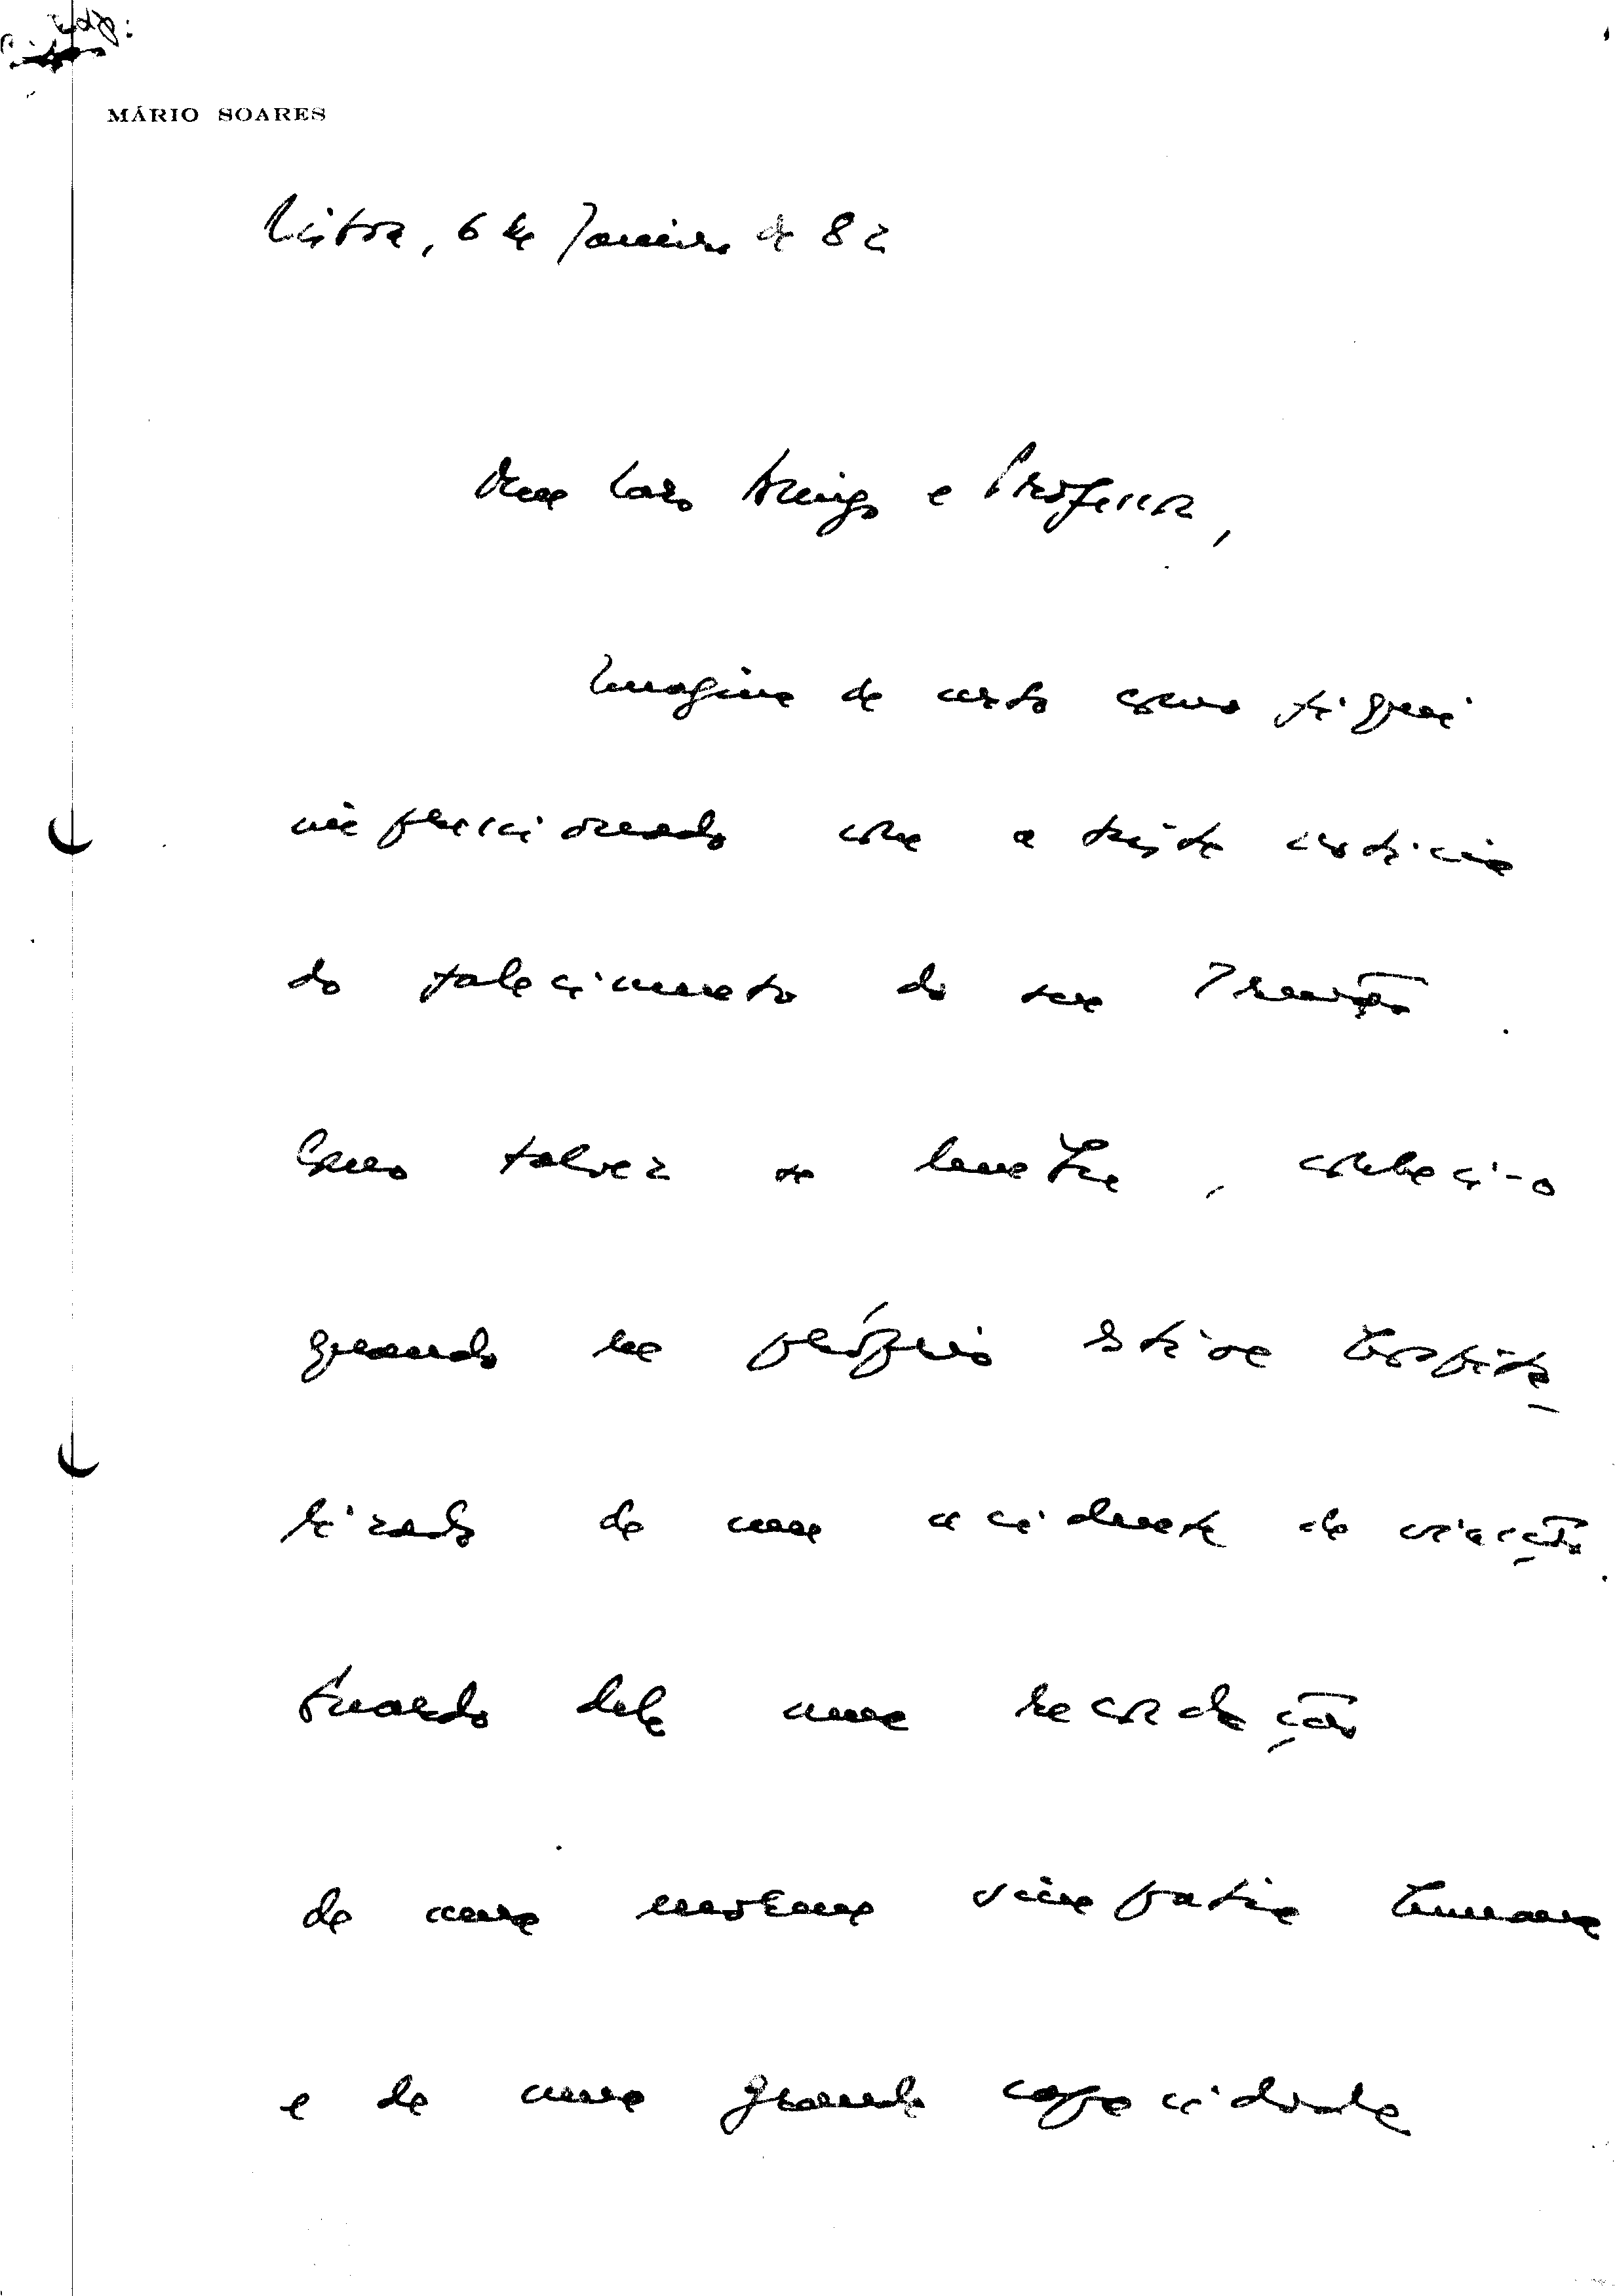 MÁRIO SOARES
Lisboa, 6 de Janeiro de 82
Meu Caro Amigo e Professor,
Imagina de certo como fiquei
impressionado com a triste notícia
do falecimento do seu Irmão.
Como talvez se lembre, conheci-o
quando eu próprio estive hospita-
lizado de um acidente de viação.
Guardo dele uma recordação
de uma enorme simpatia humana
e de uma grande capacidade